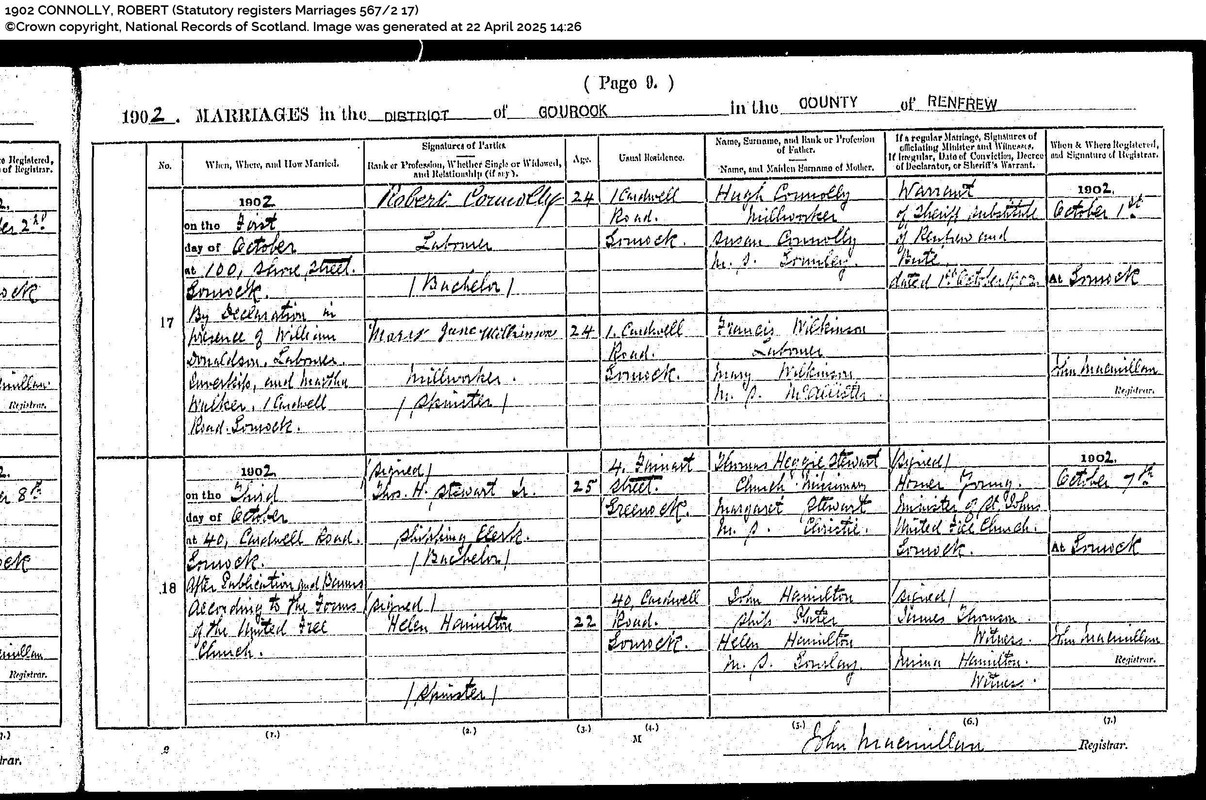 1902 CONNOLLY, ROBERT (Statutory registers Marriages 567/2 17)
©Crown copyright, National Records of Scotland. Image was generated at 22 April 2025 14:26
( Page 9. )
1902. MARRIAGES in the DISTRICT of GOUROCK in the COUNTY of RENFREW
No.
When, Where, and How Married.
Signatures of Parties
Rank or Profession, Whether Single or Widowed, and Relationship (if any).
Age.
Usual Residence.
Name, Surname, and Rank or Profession of Father.
Name, and Maiden Surname of Mother.
If a regular Marriage, Signatures of officiating Minister and Witnesses.
If irregular, Date of Conviction, Decree of Declarator, or Sheriff's Warrant.
When & Where Registered, and Signature of Registrar.
17
1902
on the First
day of October
at 100, Shore Street.
Gourock.
By Declaration in
presence of William
Donaldson, Labourer.
Inverkip, and Martha
Walker, 1 Cardwell
Road. Gourock.
Robert Connolly
Labourer
(Bachelor)
24
1 Cardwell
Road.
Gourock.
Hugh Connolly
Millworker
Susan Connolly
M. S. Gormley.
Warrant
of Sheriff Substitute
of Renfrew and
Bute
dated 1st October 1902.
1902.
October 1st
At Gourock
Mary Jane Wilkinson
Millworker.
(Spinster)
24
1. Cardwell
Road.
Gourock.
Francis Wilkinson
Labourer
Mary Wilkinson
M. S. McAllister.
John Macmillan
Registrar.
18
1902
on the Third
day of October
at 40, Cardwell Road.
Gourock.
After Publication and Banns
According to the Forms
of the United Free
Church.
(signed)
Thos. H. Stewart Jr.
Shipping Clerk
(Bachelor)
25
4. Finnart
Street.
Greenock.
Thomas Heggie Stewart
Church Missionary
Margaret Stewart
M. S. Christie.
(signed)
Young.
Minister of St Johns
United Free Church.
Gourock.
1902.
October 7th
At Gourock
(signed)
Helen Hamilton
(Spinster)
22
40 Cardwell
Road.
Gourock.
John Hamilton
Ship Plater
Helen Hamilton
M. S.
(signed)
James Thomson.
Witness.
Mina Hamilton.
Witness.
John Macmillan
Registrar.
(1.)
(2.)
(3.)
(4.)
(5.)
(6.)
(7.)
M
John Macmillan Registrar.